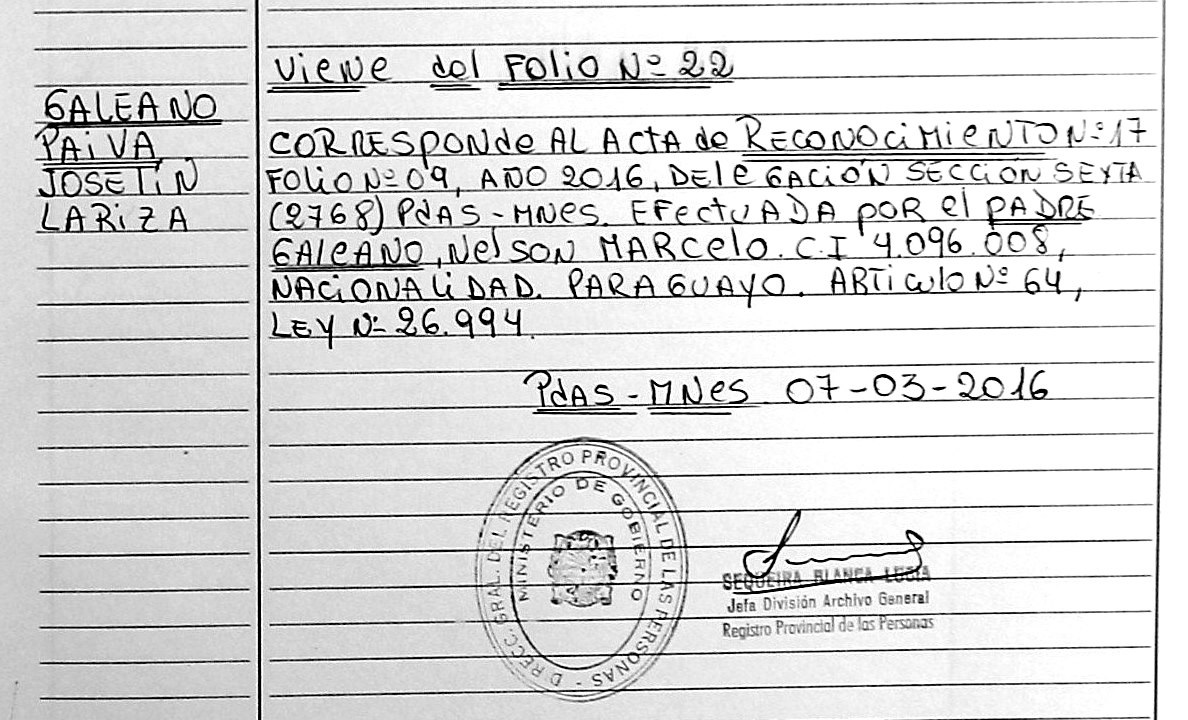 Viene del Folio Nº 22
GALEANO
PAIVA
JOSELIN
LARIZA
CORRESPONde AL ActA de RECONOCiMieNTO Nº 17
FOLiO Nº 09, AÑO 2016, DELEGACIÓN SECCIÓN SEXTA
(2768) PdAS-MNes. EFectUADA POR el PADRE
GAleANO, NelSON MARcelo. C.I 4.096.008,
NACiONALiDAD. PARAGUAYO. ARTiculo Nº 64,
LEY Nº 26.994.
PdAS-MNes 07-03-2016
DIRECC. GRAL. DEL REGISTRO PROVINCIAL DE LAS PERSONAS -
MINISTERIO DE GOBIERNO
SEQUEIRA BLANCA LUCIA
Jefa División Archivo General
Registro Provincial de las Personas